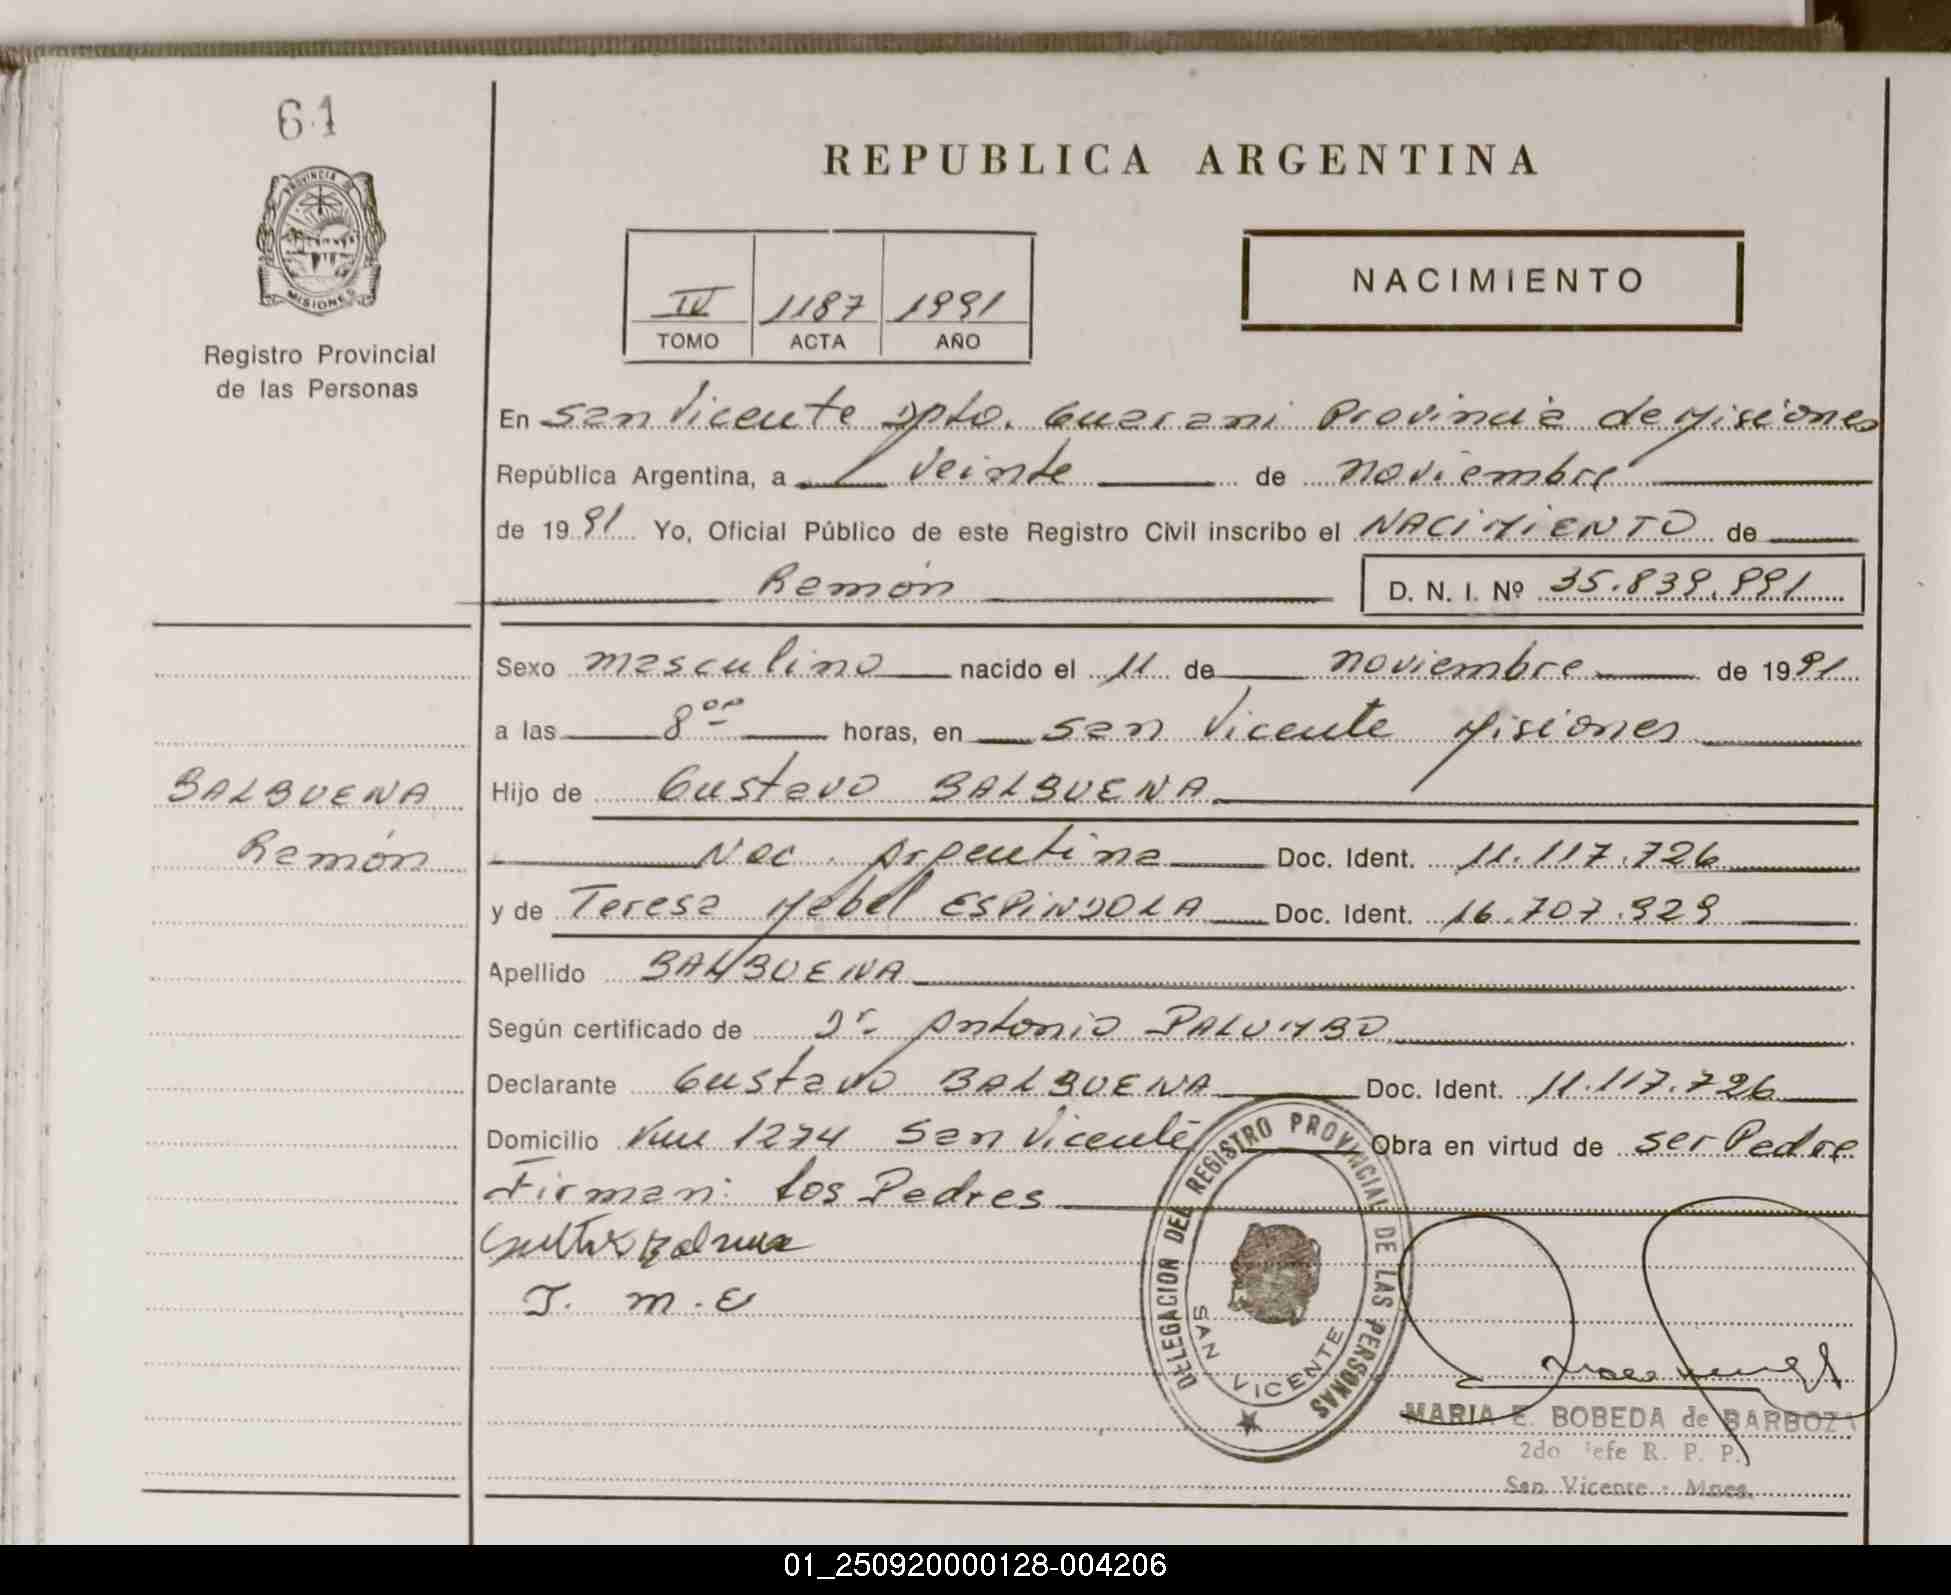 61
PROVINCIA DE
MISIONES
Registro Provincial
de las Personas
REPUBLICA ARGENTINA
IV 1187 1991
TOMO ACTA AÑO
NACIMIENTO
En San Vicente Dpto. Guarani Provincia de Misiones
República Argentina, a veinte de noviembre
de 1991 Yo, Oficial Público de este Registro Civil inscribo el NACIMIENTO de
Ramón D. N. I. Nº 35.839.991
Sexo masculino nacido el 11 de noviembre de 1991
a las 8°° horas, en San Vicente Misiones
BALBUENA
Ramón
Hijo de Gustavo BALBUENA
Nac. Argentina Doc. Ident. 11.117.726
y de Teresa Mabel ESPINDOLA Doc. Ident. 16.707.929
Apellido BALBUENA
Según certificado de Dr. Antonio PALUMBO
Declarante Gustavo BALBUENA Doc. Ident. 11.117.726
Domicilio Km 1274 San Vicente Obra en virtud de ser Padre
Firman: los Padres
T. M. E
DELEGACION DEL REGISTRO PROVINCIAL DE LAS PERSONAS
SAN VICENTE
MARIA E. BOBEDA de BARBOZA
2do Jefe R. P. P.
San Vicente - Mnes.
01_250920000128-004206